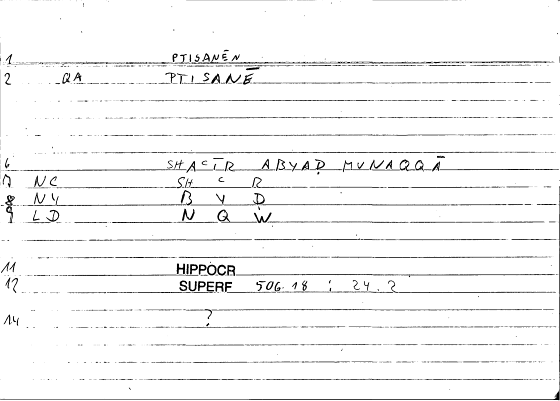 1 PTISANĒN
2 QA PTISANĒ
6 SHAᶜĪR ABYAḌ MUNAQQĀ
7 NC SH C R
8 NY B Y Ḍ
9 LD N Q W
11 HIPPOCR
12 SUPERF 506.18 ; 24.2
14 ?